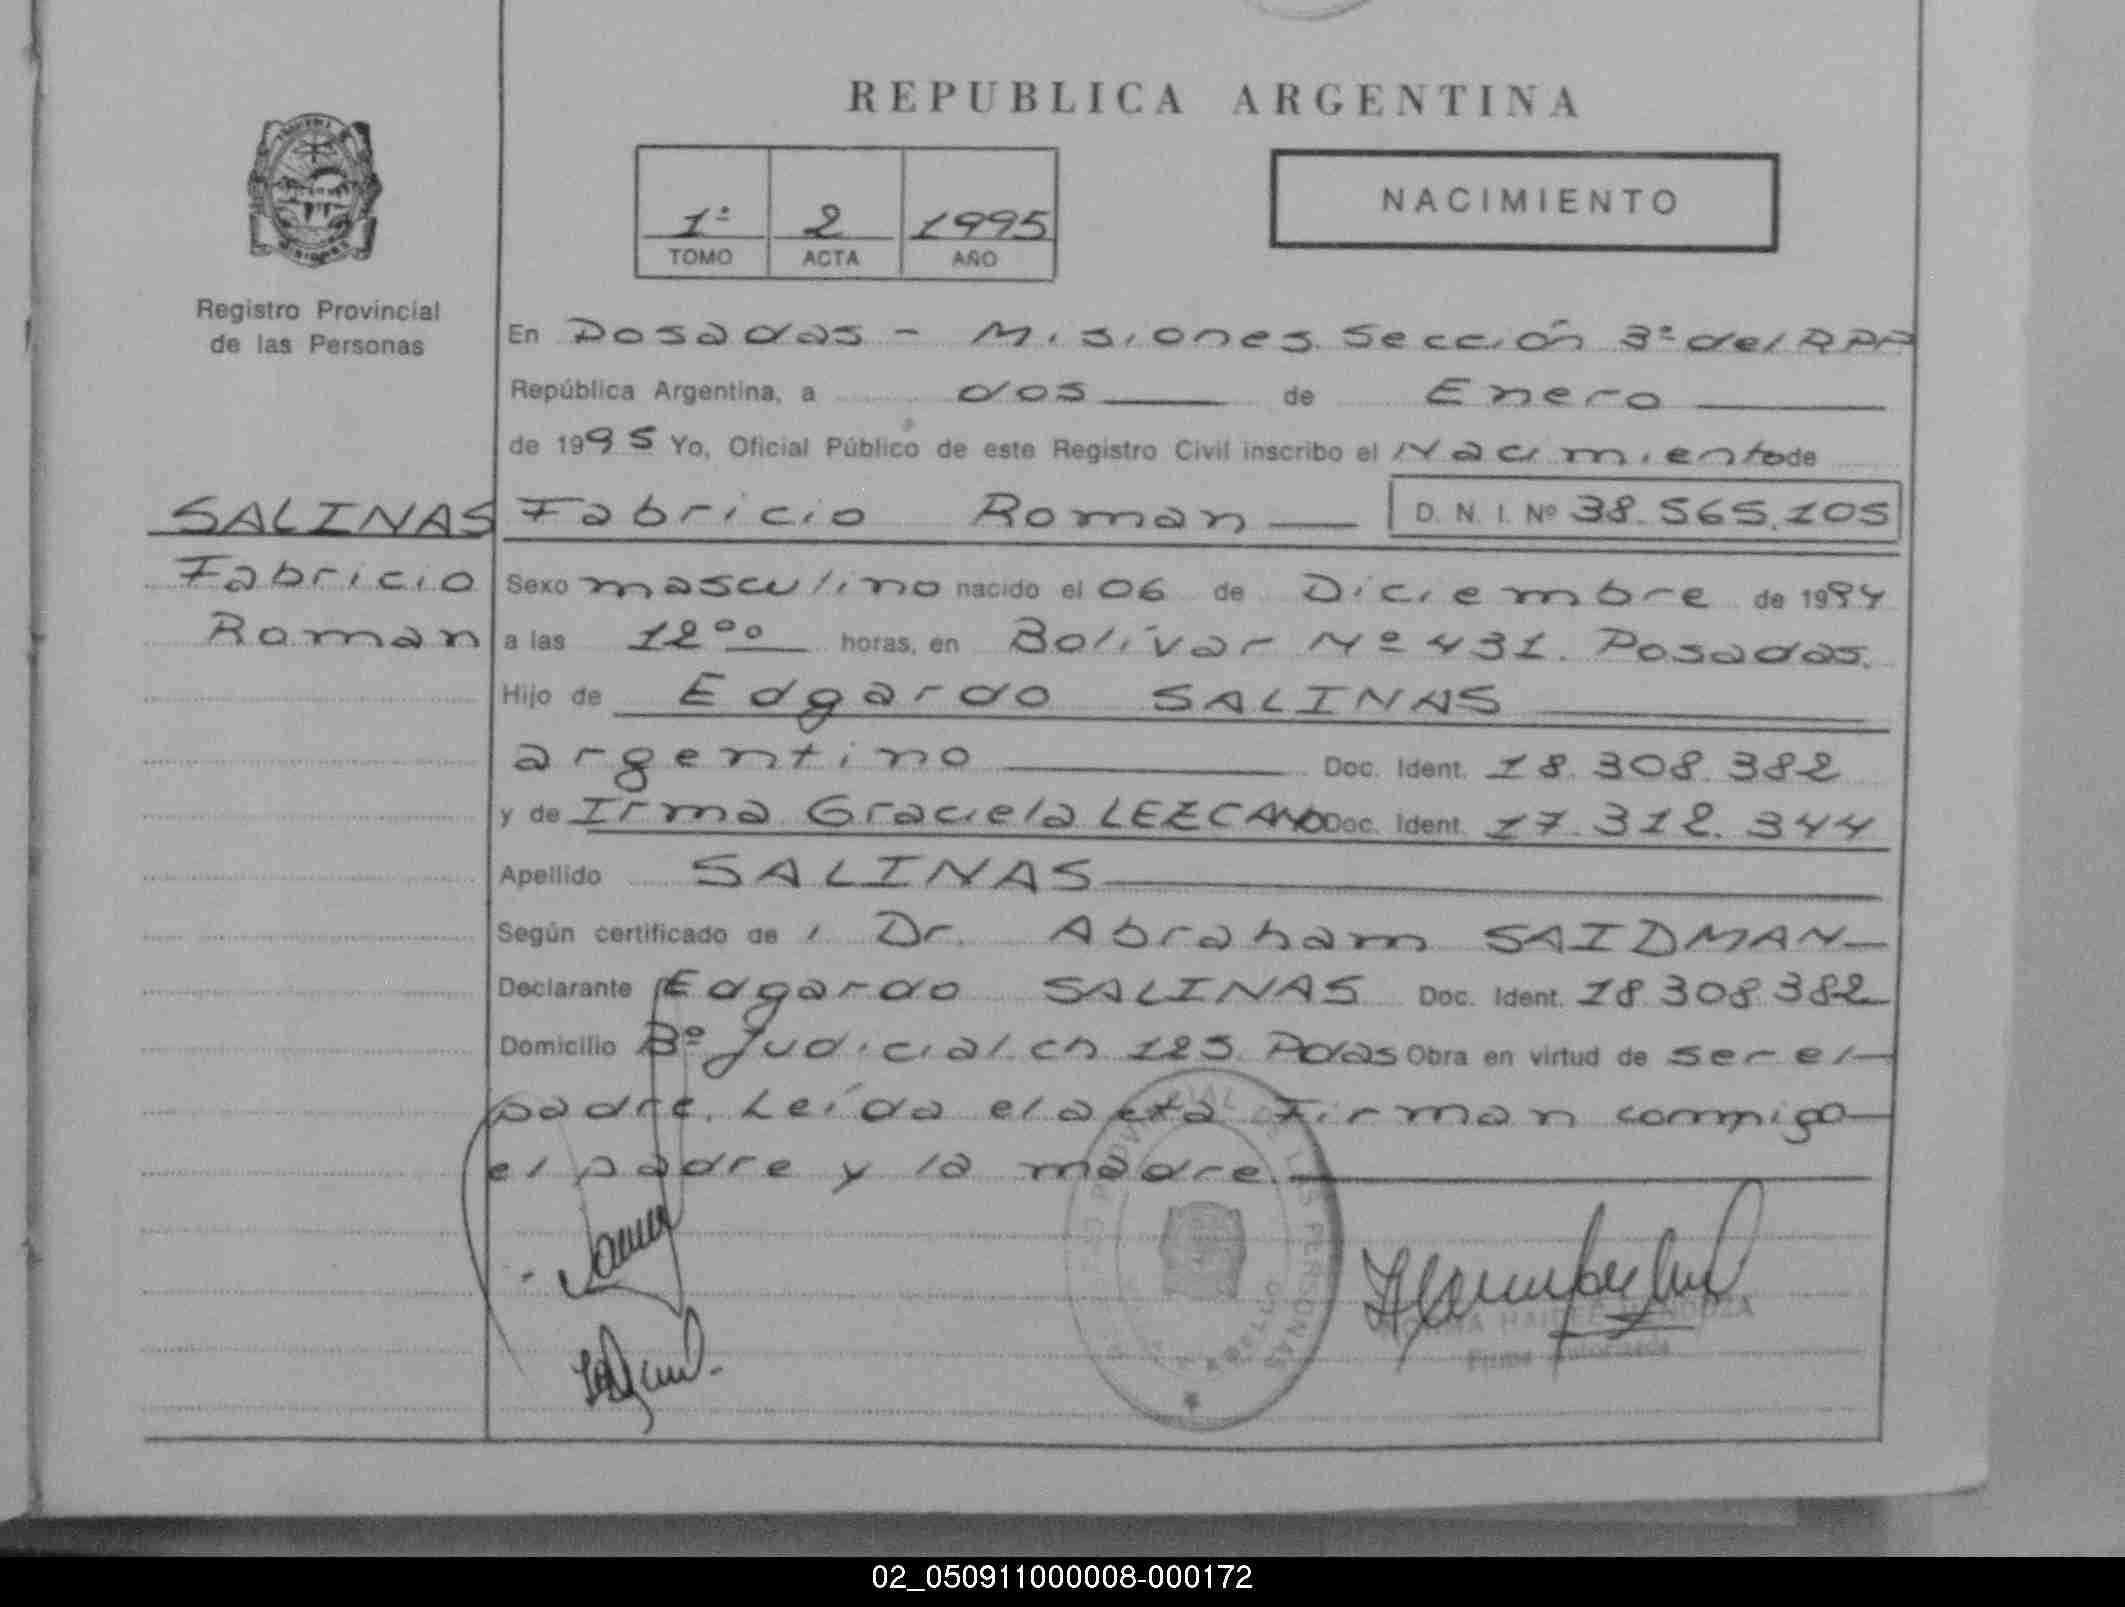 REPUBLICA ARGENTINA
1º 2 1995
TOMO ACTA AÑO
NACIMIENTO
Registro Provincial
de las Personas
SALINAS
Fabricio
Roman
En Posadas - Misiones Sección 3ª del RPP
República Argentina, a dos de Enero
de 1995 Yo, Oficial Público de este Registro Civil inscribo el Nacimiento de
Fabricio Roman D. N. I. Nº 38.565.105
Sexo masculino nacido el 06 de Diciembre de 1994
a las 12ºº horas, en Bolívar Nº 431. Posadas.
Hijo de Edgardo SALINAS
argentino Doc. Ident. 18.308.382
y de Irma Graciela LEZCANO Doc. Ident. 17.312.344
Apellido SALINAS
Según certificado de Dr. Abraham SAIDMAN
Declarante Edgardo SALINAS Doc. Ident. 18.308.382
Domicilio Bº Judicial ch 125 Pdas Obra en virtud de ser el
padre. Leída el acta Firman conmigo
el padre y la madre.
Firma Autorizada
02_050911000008-000172